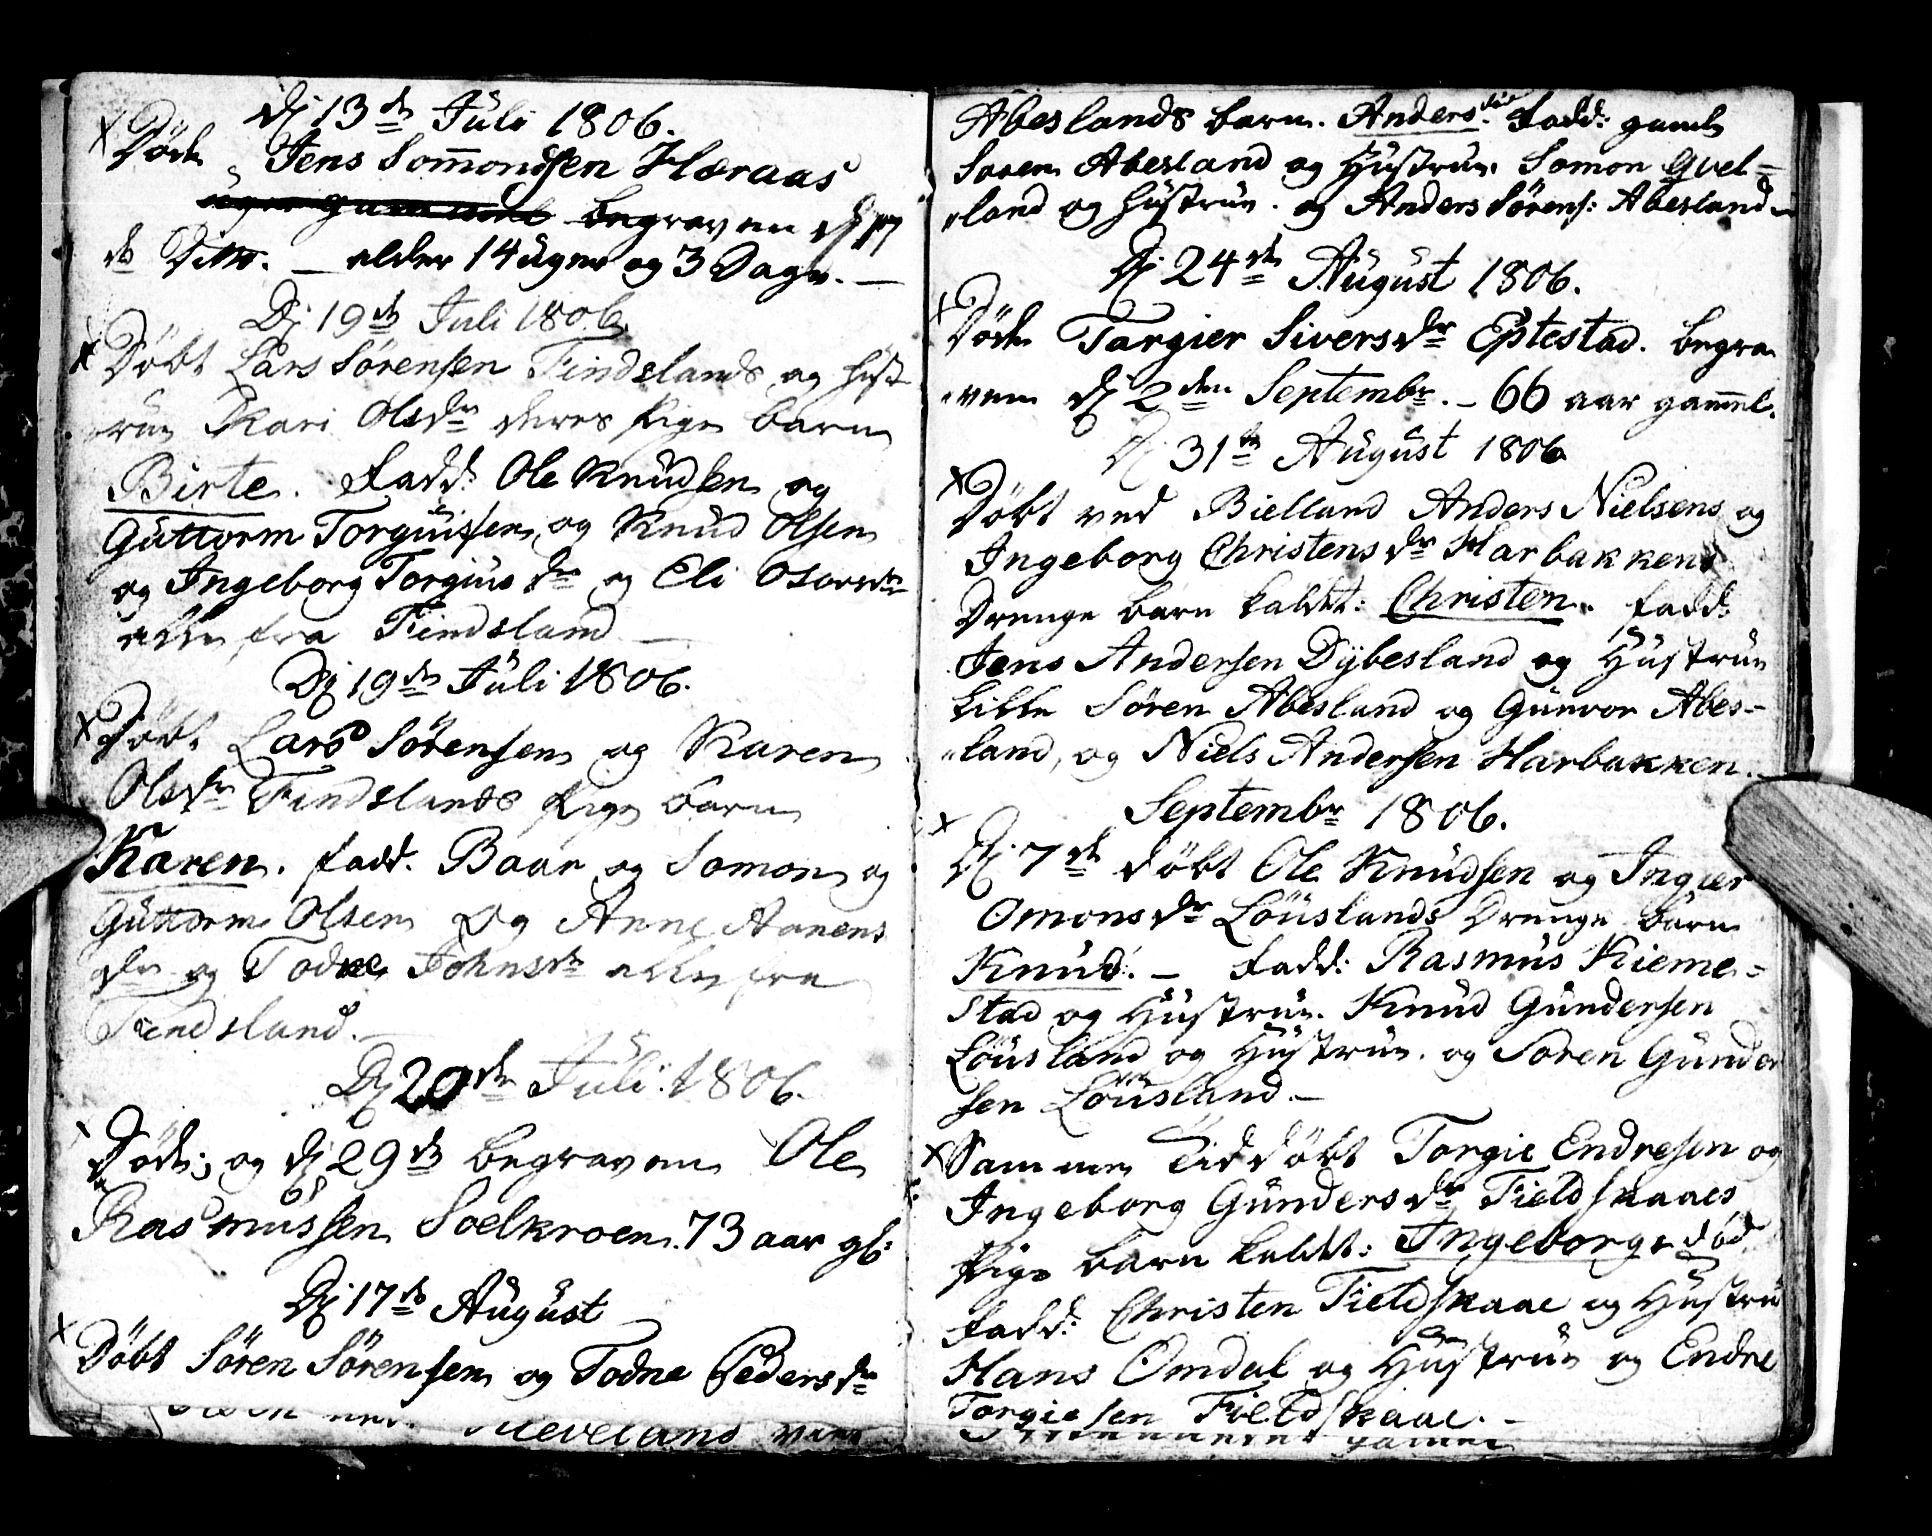 Dj 13de Juli 1806.
Döde Jens Sommondsen Heraas
uger gammel begraven dj 17
de Ditto. — alder 14 uger og 3 Dage. —
Dj 19de Juli 1806.
Döbt Lars Sörensen Findslands og hust
rue Kari Olsdr deres Pige barn
Birte. Fadd: Ole Knudsen og
Guttorm Torguissen, og Knud Olsen
og Ingeborg Torgiusdr og Eli
alle fra Findsland —
Dj 19de Juli 1806.
Döbt Lars Sörensen og Karen
Olsdr Findslands Pige barn
Karen. fadd. Baar og Somon og
Guttorm Olsen og Anne Aanens
dr og Todne Johnsdr alle fra
Findsland. —
Dj 20de Juli 1806.
Döde; og dj 29de begraven Ole
68
Rasmussen Soelkroen. 73 aar gl:
Dj 17de August
Döbt Sören Sörensen og Todne Pedersdr
Abeslands barn. Anders. Fadd: gamle
Soren Abesland og Hustrue. Somon Qvel=
land og hustrue. og Anders Sörens: Abesland
Dj 24de August 1806.
Döde Targier Siversdr Eptestad. begra
ven dj 2den Septembr. — 66 aar gammel.
Dj 31te August 1806
Döbt ved Bielland Anders Nielsens og
Ingeborg Christensdr Harbakkens
Drenge barn kaldt: Christen. fadd:
Jens Andersen Dybesland og Hustrue
Lille Sören Abesland og Gunvor Abes-
land, og Niels Andersen Harbakken. —
Septembr 1806.
Dj 7de döbt Ole Knudsen og Ingier
Omonsdr Löuslands Drenge barn
Knud. — Fadd: Rasmus Kieme=
stad og Hustrue. Knud Gundersen
Löusland og Hustrue. og Soren Gunder
sen Löusland. —
Samme Tid döbt Torgie Endresen og
Ingeborg Gundersdr Fieldskaaes
Pige barn kaldt: Ingeborg. död
Fadd: Christen Fieldskaae og Hustru
Hans Omdal og Hustrue og Endre
Torgiesen Fieldskaae. —